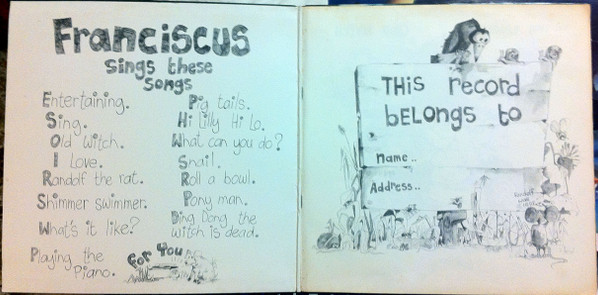 Franciscus
Sings these
songs
Entertaining.
Sing.
Old Witch.
I Love.
Randolf the rat.
Shimmer swimmer.
What's it like?
Playing the
Piano.
Pig tails.
Hi Lilly Hi Lo.
What can you do?
Snail.
Roll a bowl.
Pony man.
Ding Dong the
witch is dead.
For You
THis record
belongs to
Name..
Address..